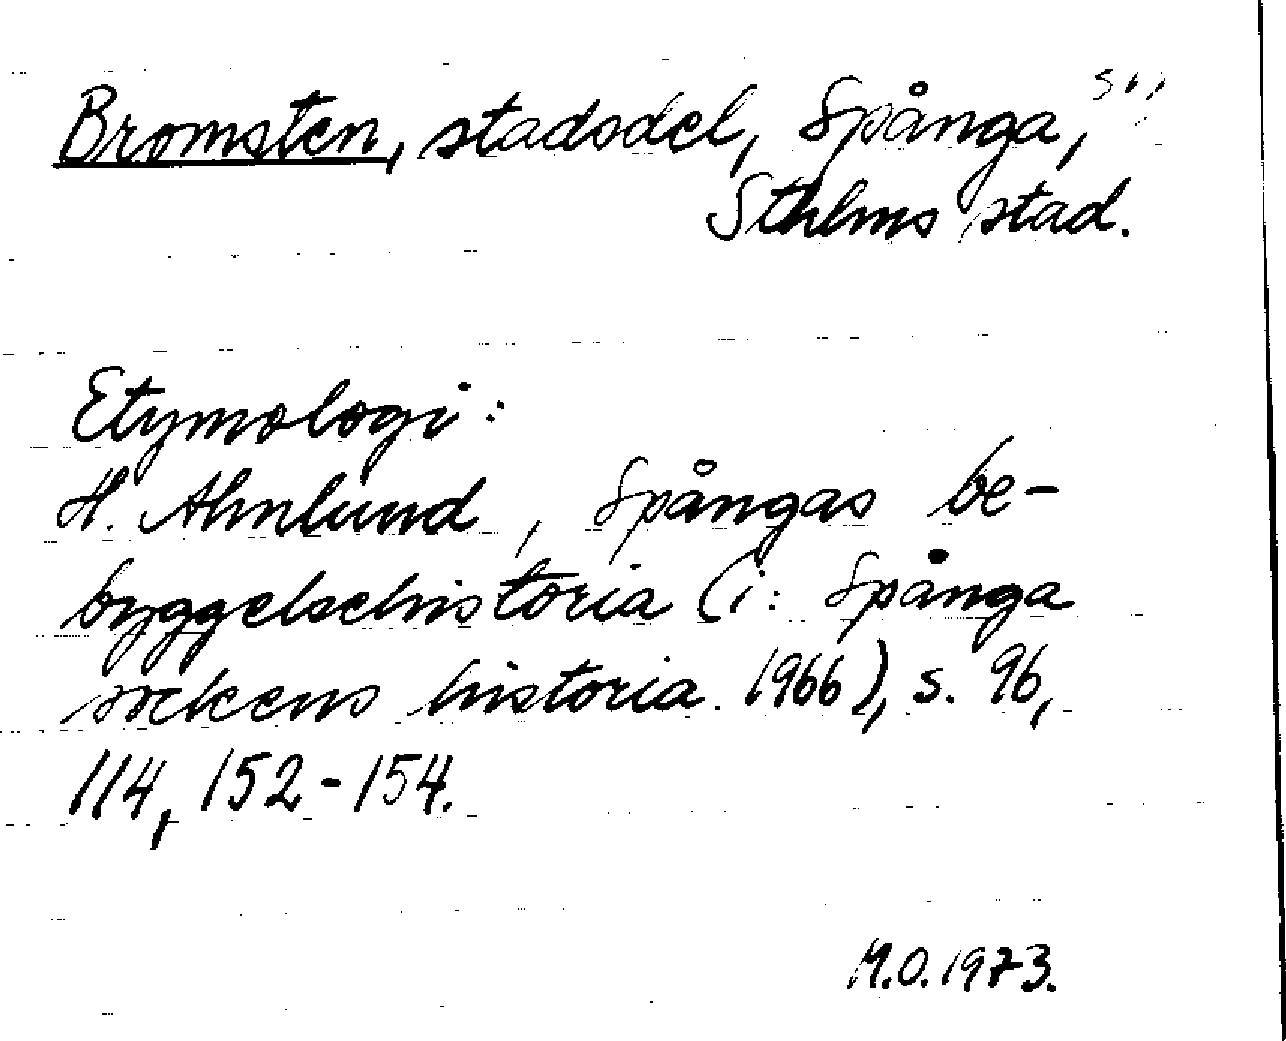 Bromsten, stadsdel, Spånga,
Sthlms stad.
Etymologi:
H. Ahnlund, Spångas be-
byggelsehistoria (i: Spånga
sockens historia. 1966), s. 96,
114, 152-154.
M.O. 1973.